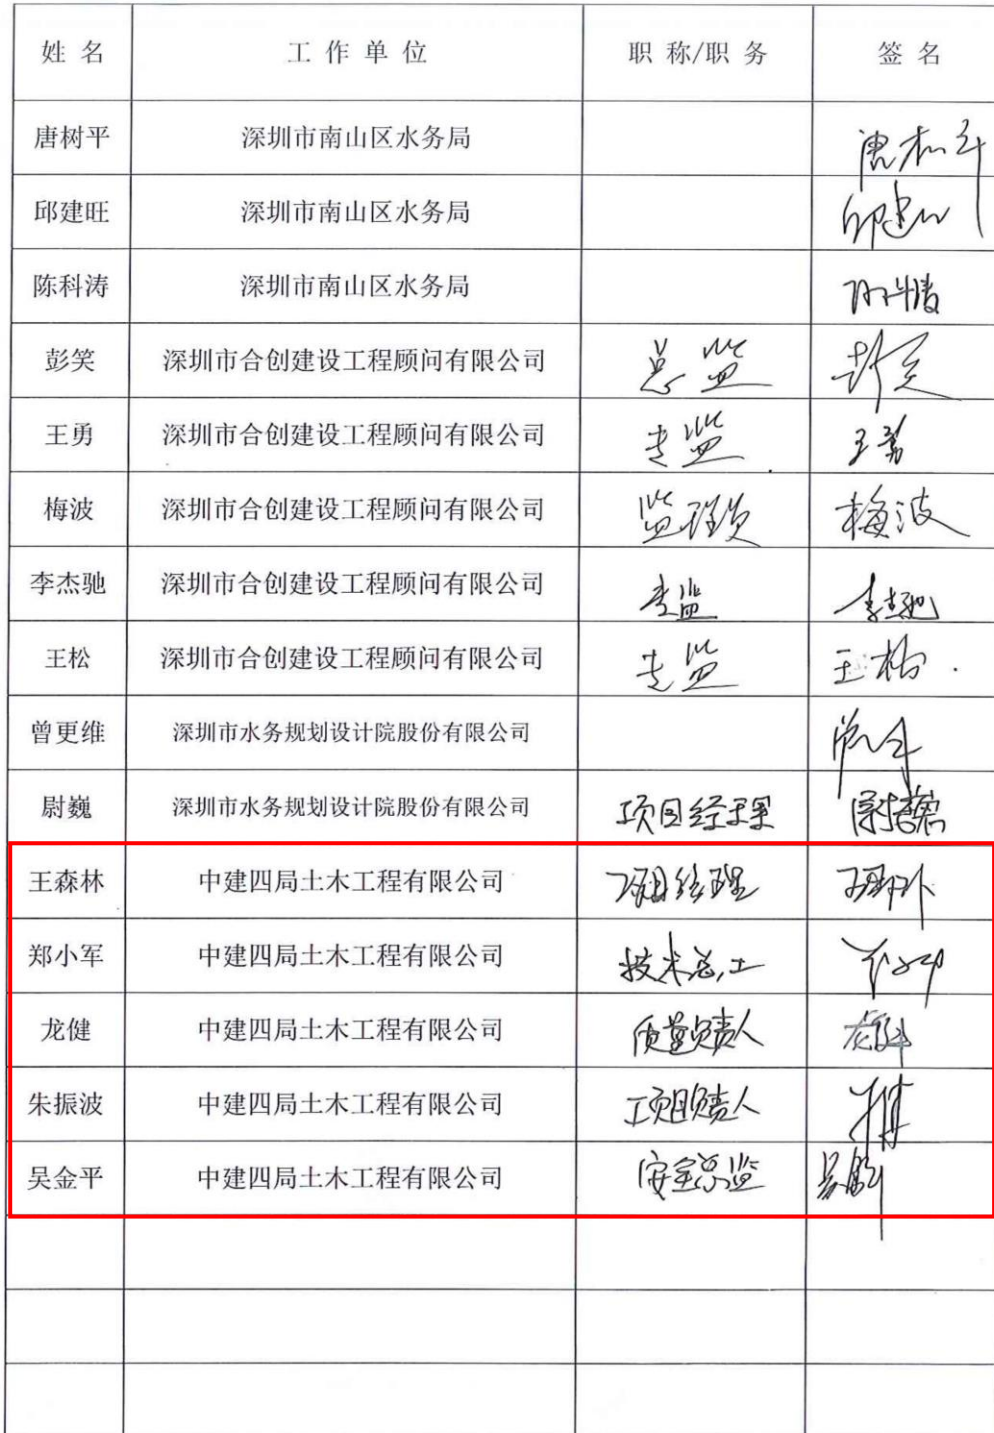 姓 名 工 作 单 位 职 称/职 务 签 名
唐树平 深圳市南山区水务局
邱建旺 深圳市南山区水务局
陈科涛 深圳市南山区水务局
彭笑 深圳市合创建设工程顾问有限公司 总监 彭笑
王勇 深圳市合创建设工程顾问有限公司 专监 王勇
梅波 深圳市合创建设工程顾问有限公司 监理员 梅波
李杰驰 深圳市合创建设工程顾问有限公司 专监 李杰驰
王松 深圳市合创建设工程顾问有限公司 专监 王松
曾更维 深圳市水务规划设计院股份有限公司
尉巍 深圳市水务规划设计院股份有限公司 项目经理
王森林 中建四局土木工程有限公司 项目经理
郑小军 中建四局土木工程有限公司 技术总工
龙健 中建四局土木工程有限公司 质量负责人
朱振波 中建四局土木工程有限公司 项目负责人
吴金平 中建四局土木工程有限公司 安全总监